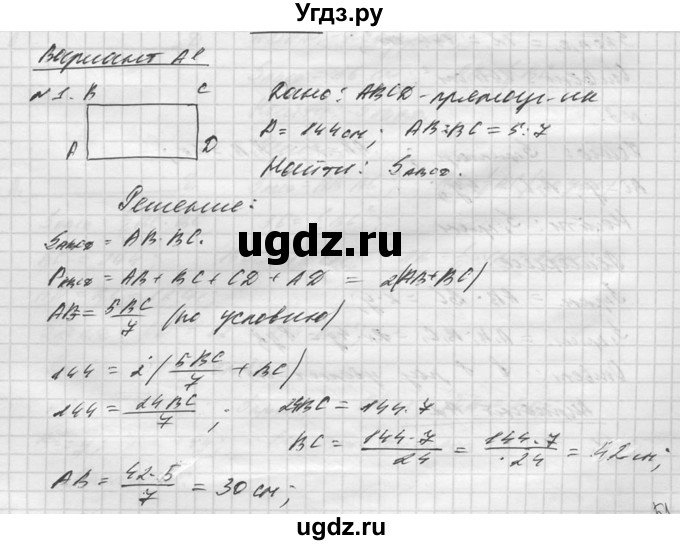 Угдз.ру
Вариант А2
№1. B C
A D
Дано: ABCD - прямоуг-ик
P = 144 см; AB:BC = 5:7
Найти: S ABCD.
Решение:
S ABCD = AB·BC.
P ABCD = AB + BC + CD + AD = 2(AB+BC)
AB = 5BC/7 (по условию)
144 = 2(5BC/7 + BC)
144 = 24BC/7; 24BC = 144·7
BC = 144·7/24 = 144·7/24 = 42 см;
AB = 42·5/7 = 30 см;
uгdz.ru
uгdz.ru